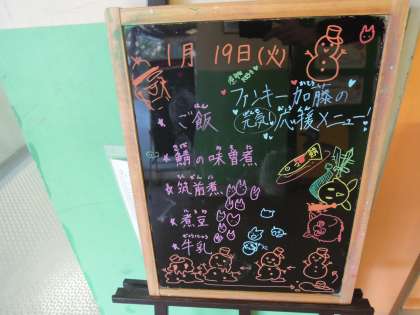 1月19日(火)
ファンキー加藤の
(元気)応援メニュー!
★ご飯
★鯖の味噌煮
★筑前煮
★煮豆
★牛乳